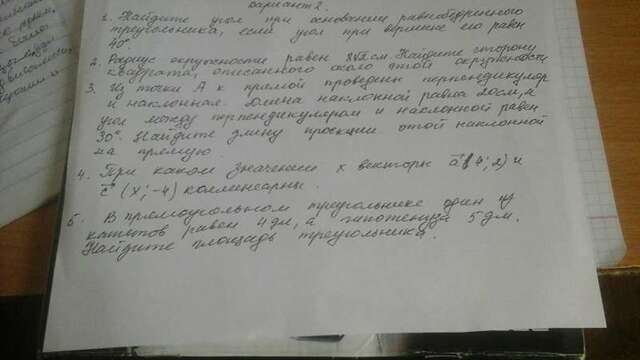 вариант 2.
1. Найдите угол при основании равнобедренного
треугольника, если угол при вершине его равен
40°
2. Радиус окружности равен см. Найдите сторону
квадрата, описанного около этой окружности
3. Из точки А к прямой проведены перпендикуляр
и наклонная. Длина наклонной равна 20см, а
угол между перпендикуляром и наклонной равен
30°. Найдите длину проекции этой наклонной
на прямую.
4. При каком значении х векторы a⃗ (4; 2) и
c⃗ (х; -4) коллинеарны.
5. В прямоугольном треугольнике один из
катетов равен 4дм, а гипотенуза 5дм.
Найдите площадь треугольника.